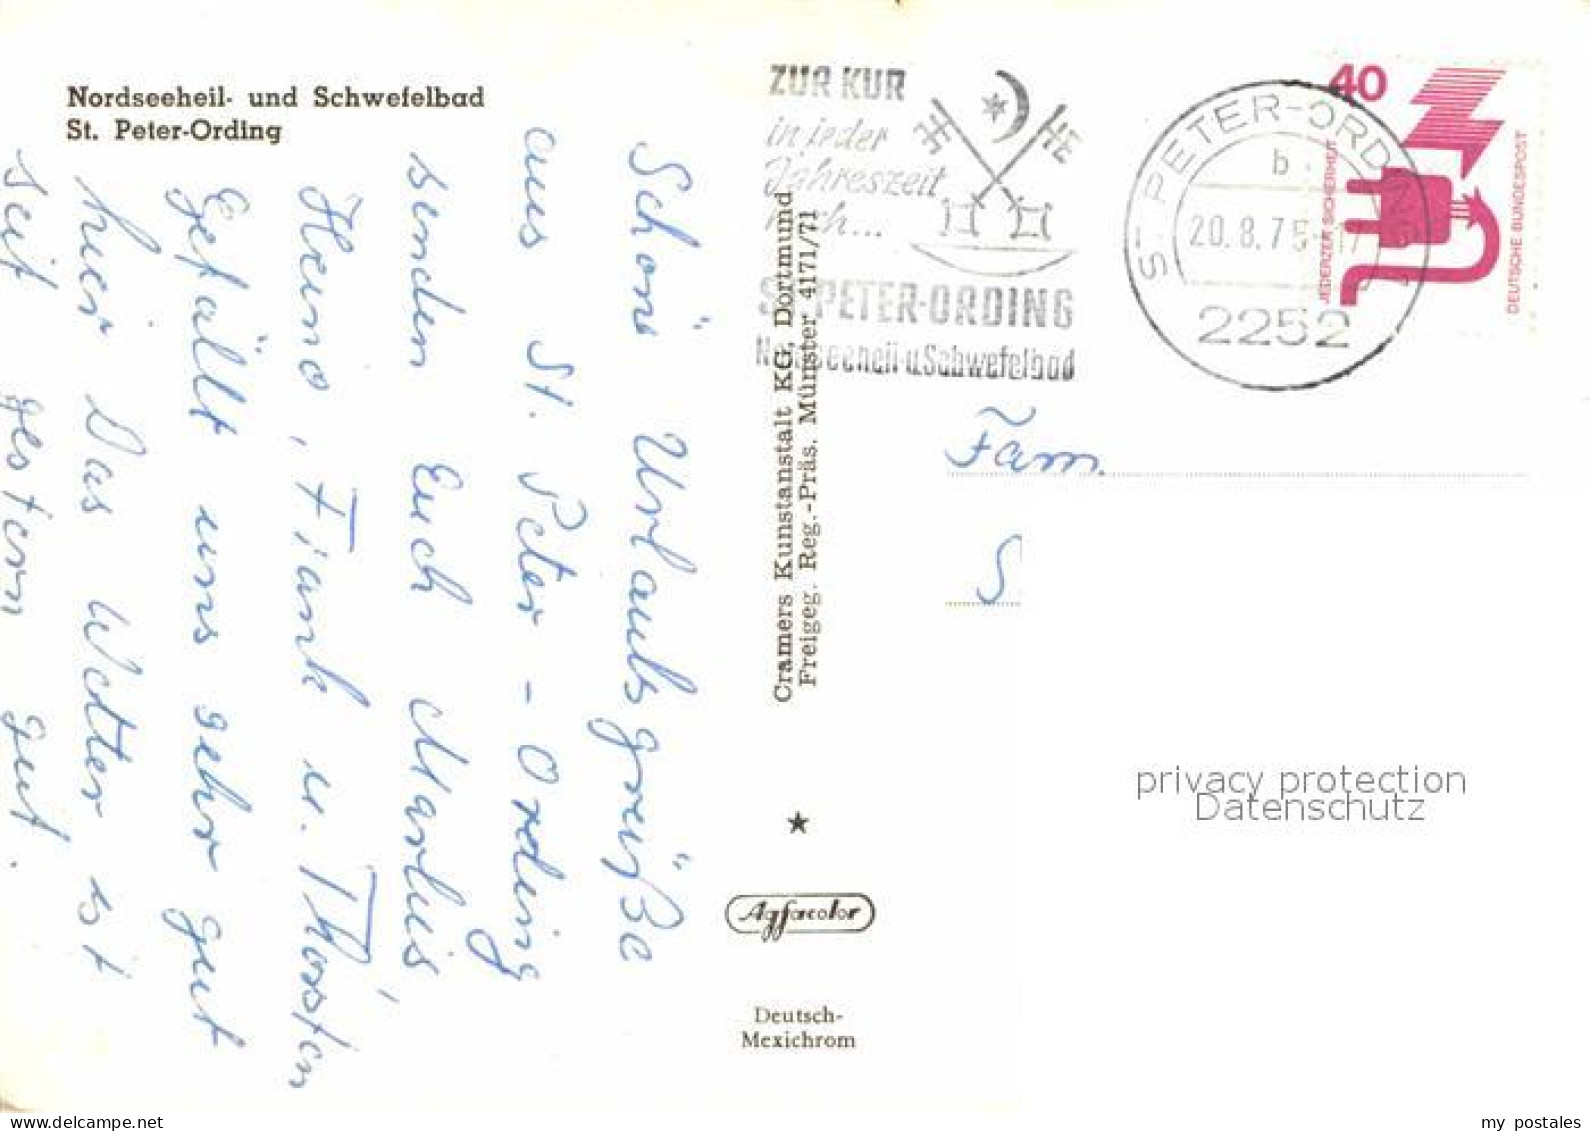 Nordseeheil- und Schwefelbad
St. Peter-Ording
Schöne Urlaubsgrüße
aus St. Peter-Ording
senden Euch Marlies,
Heino, Frank u. Thorsten
Gefällt uns sehr gut
hier Das Wetter ist
seit gestern gut.
Cramers Kunstanstalt KG, Dortmund
Freigeg. Reg.-Präs. Münster 4171/71
Agfacolor
Deutsch-
Mexichrom
ZUR KUR
in jeder
Jahreszeit
nach...
ST. PETER-ORDING
Nordseeheil-u.Schwefelbad
ST PETER-ORDING
b
20.8.75-17
2252
40
JEDERZEIT SICHERHEIT
DEUTSCHE BUNDESPOST
Fam.
S
privacy protection
Datenschutz
my postales